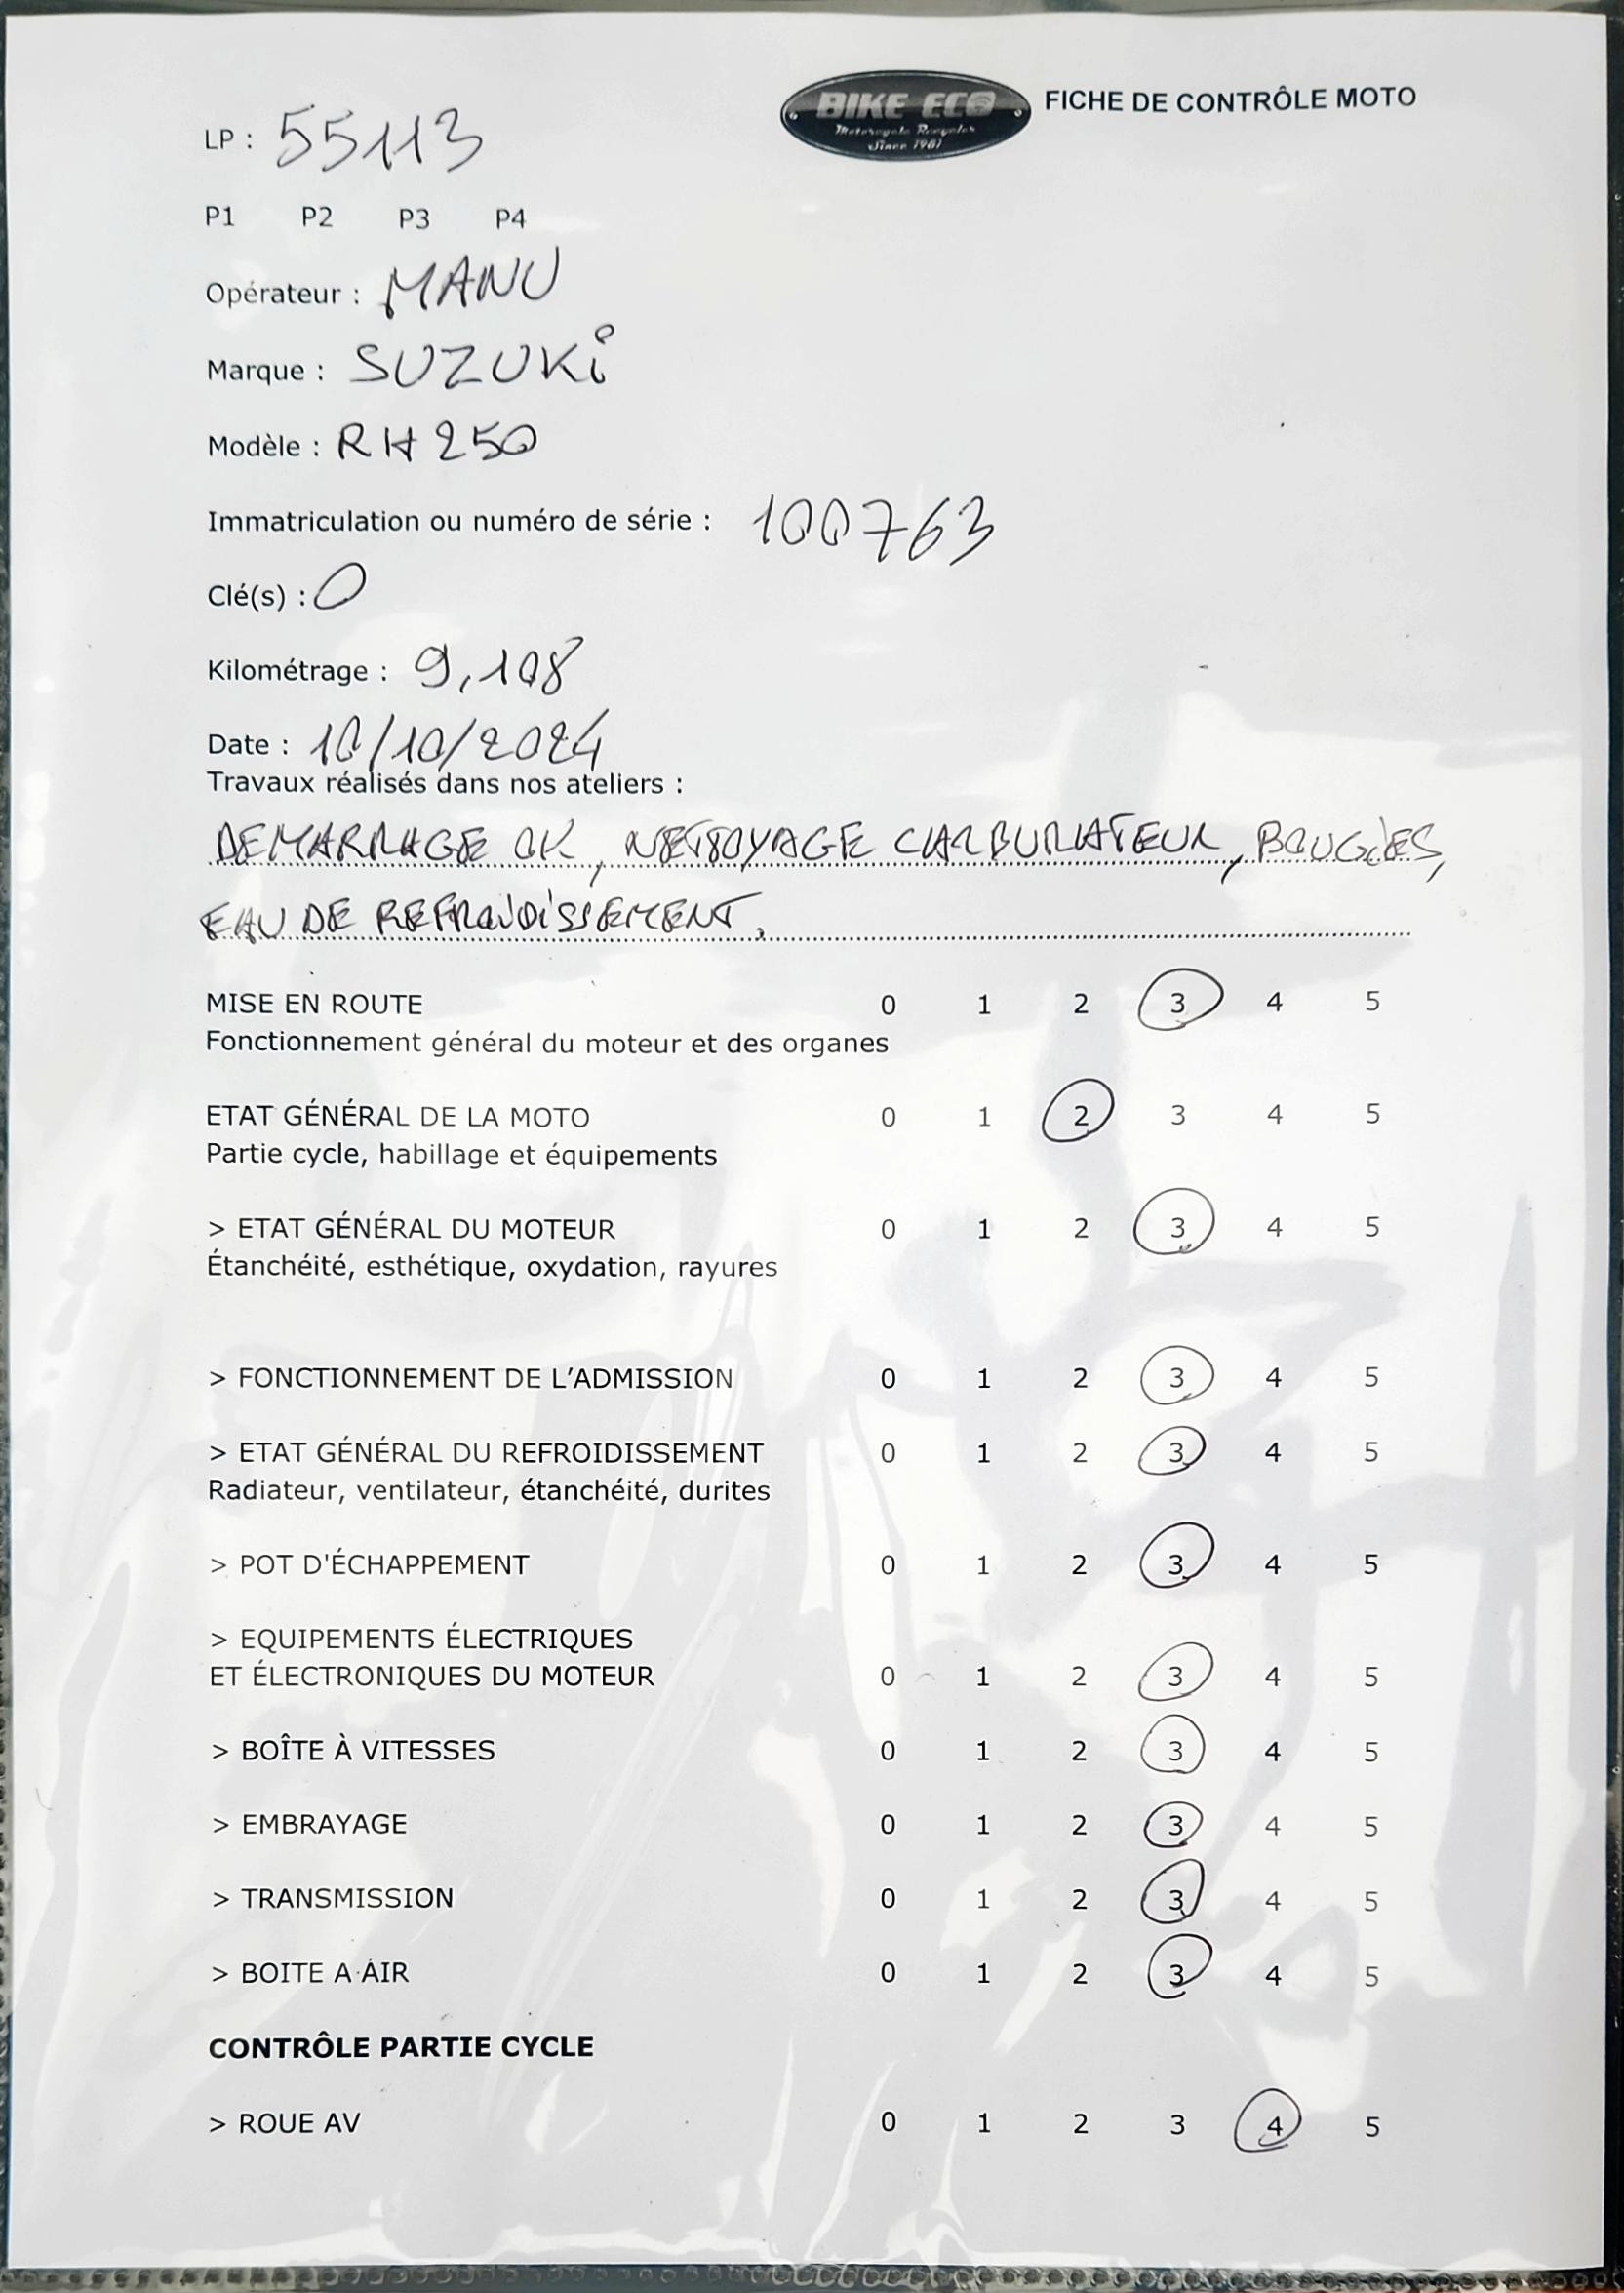 BIKE ECO
Motorcycle Recycler
Since 1981
FICHE DE CONTRÔLE MOTO
LP : 55113
P1 P2 P3 P4
Opérateur : MANU
Marque : SUZUKi
Modèle : RH 250
Immatriculation ou numéro de série : 100763
Clé(s) : 0
Kilométrage : 9,108
Date : 10/10/2024
Travaux réalisés dans nos ateliers :
DEMARRAGE OK, NETTOYAGE CARBURATEUR, BOUGiES,
EAU DE REFROiDiSSEMENT,
MISE EN ROUTE 0 1 2 3 4 5
Fonctionnement général du moteur et des organes
ETAT GÉNÉRAL DE LA MOTO 0 1 2 3 4 5
Partie cycle, habillage et équipements
> ETAT GÉNÉRAL DU MOTEUR 0 1 2 3 4 5
Étanchéité, esthétique, oxydation, rayures
> FONCTIONNEMENT DE L'ADMISSION 0 1 2 3 4 5
> ETAT GÉNÉRAL DU REFROIDISSEMENT 0 1 2 3 4 5
Radiateur, ventilateur, étanchéité, durites
> POT D'ÉCHAPPEMENT 0 1 2 3 4 5
> EQUIPEMENTS ÉLECTRIQUES
ET ÉLECTRONIQUES DU MOTEUR 0 1 2 3 4 5
> BOÎTE À VITESSES 0 1 2 3 4 5
> EMBRAYAGE 0 1 2 3 4 5
> TRANSMISSION 0 1 2 3 4 5
> BOITE A AIR 0 1 2 3 4 5
CONTRÔLE PARTIE CYCLE
> ROUE AV 0 1 2 3 4 5